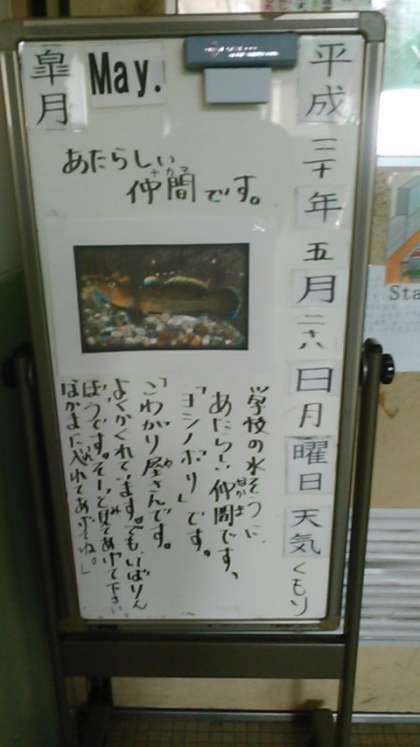 平成三十年五月二十八日月曜日天気くもり
皐月
May.
あたらしい
仲間です。
ナカマ
学校の水そうに
あたらしい仲間です、
なかま
「ヨシノボリ」です。
「こわがり屋さんです。
よくかくれています。でも、いばりん
ぼうです。そーっと見てあげて下さい。
なかまに入れてあげてね。」
Sta